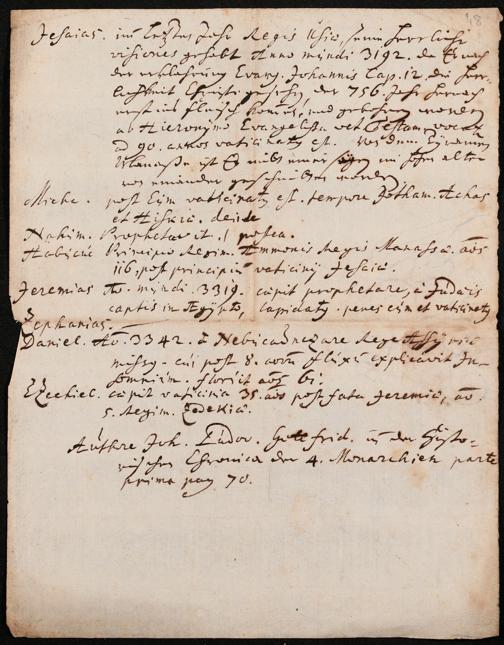 48
Jesaias. im letzten Jahr Regis Usiæ, seine herrliche
visiones gehabt Anno mundi 3192. da Er nach
der erklehrung Evang. Johannis Cap. 12. die Herr-
lichkeit Christi gesehen der 756. Jahr hernach
erst ins fleisch kommen, und gebohren worden
ab Hieronymo Evangelista vet. Testam. vocatur
ad 90. annos vaticinatus est.
Manasse ist Er mit einer Sägen im
von einander geschnitten worden
Micha. post Eum vaticinatus est. tempore Jotham. Achas
et Hiskiæ.
Nahum. Prophetavit postea.
Habacuc Principio Regim. Ammonis Regis Manassæ aos
116, post principiū vaticinij Jesaiæ.
Jeremias Ao. mundi. 3319. cœpit prophetare, à Judæis
captis in Ægypto, lapidatus. penes eum et vaticinatus
Zephanias.
Daniel. Ao. 3342. à Nebucadnezare Rege Assyriæ
cui post 8. explicavit In-
somnium. floruit aos 61.
Ezechiel. cœpit vaticinia 35. aos post fata Jeremiæ, ao.
5. Regim. Zedekiæ.
Authore Joh. Ludov. Gottfrid. in der Histo-
rischen Chronica der 4. Monarchien parte
prima pag 70.